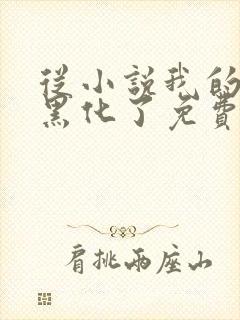 從小說我的
黑化了免費
肩挑兩座山